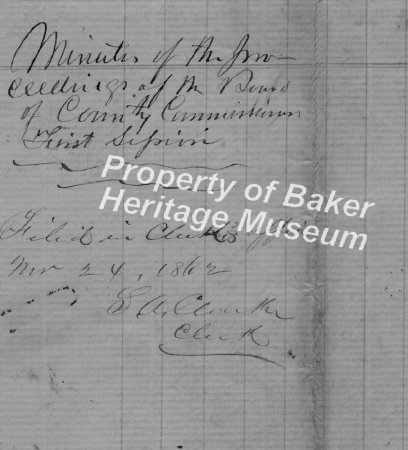 Minutes of the Pro-
ceedings of the Board
of County Commissioners
First Session
Property of Baker
Heritage Museum
Filed in Clerks office
Nov 24, 1862
Clerk